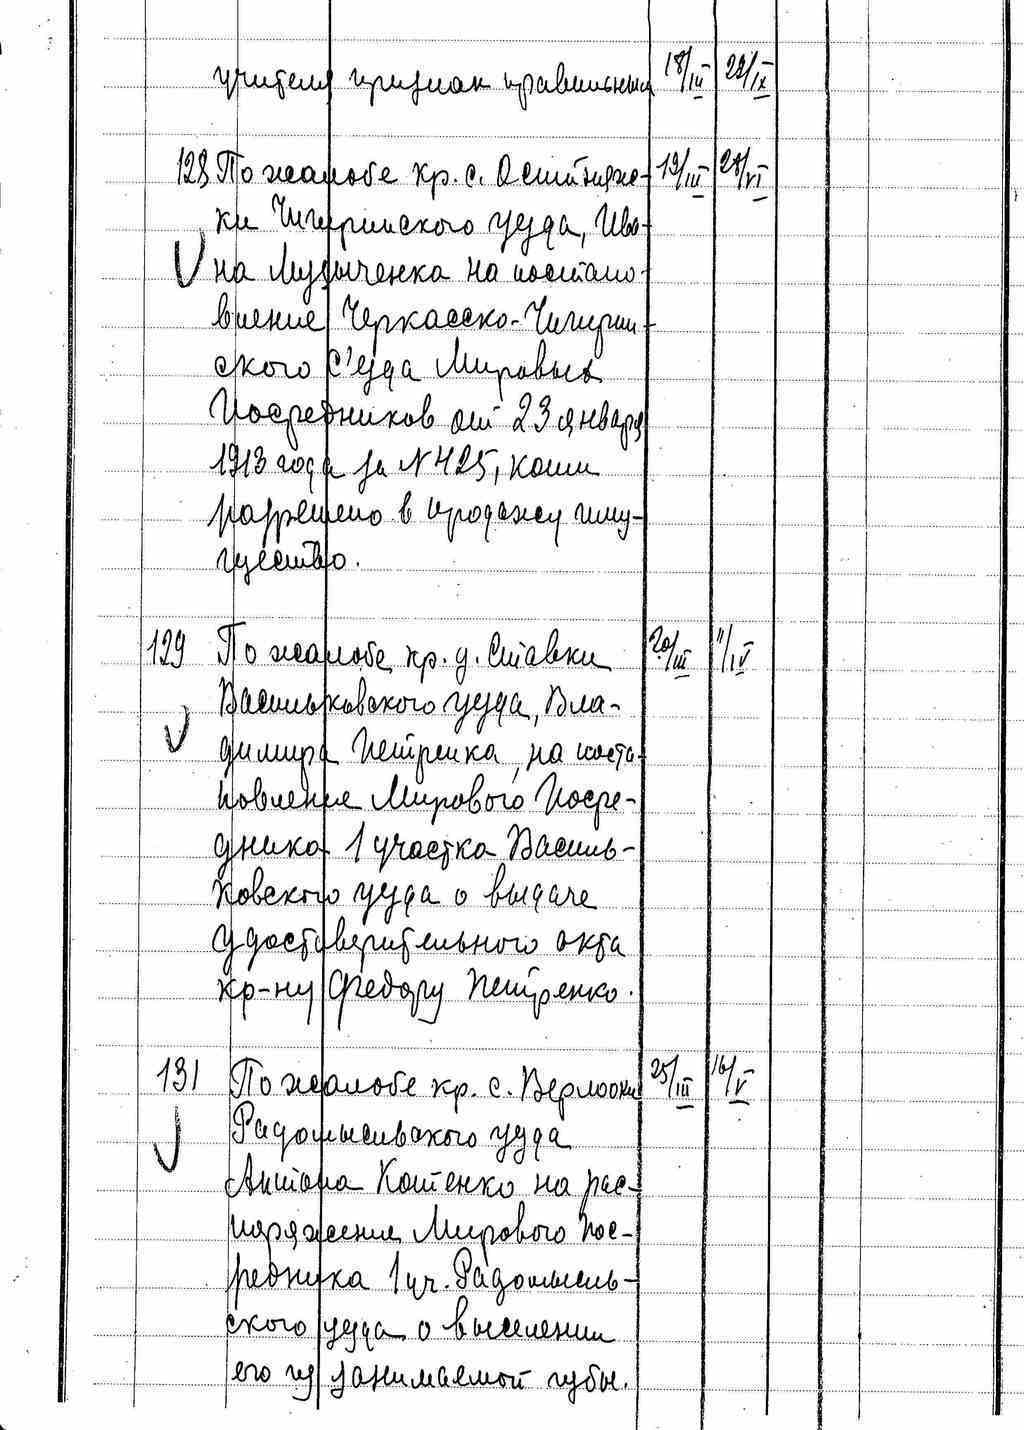 учителя признак правильным 18/III 22/IX
128 По жалобе кр. с. Оситняж- 19/III 28/VI
ки Чигиринского уезда, Ива-
на Музыченка на постано-
вление Черкасско-Чигирин-
ского с'езда Мировых
Посредников от 23 января
1913 года за N 425, коим
разрешено в продажу иму-
щество.
129 По жалобе кр. д. Ставки 20/III 11/IV
Васильковского уезда, Вла-
димира Петренка, на поста-
новление Мирового Посре-
дника 1 участка Василь-
ковского уезда о выдаче
удостоверительного акта
кр-ну Федору Петренко.
131 По жалобе кр. с. 25/III 16/V
Радомысльского уезда
Антона Котенко на рас-
поряжение Мирового Пос-
редника 1 уч. Радомысль-
ского уезда о выселении
его из занимаемой избы.